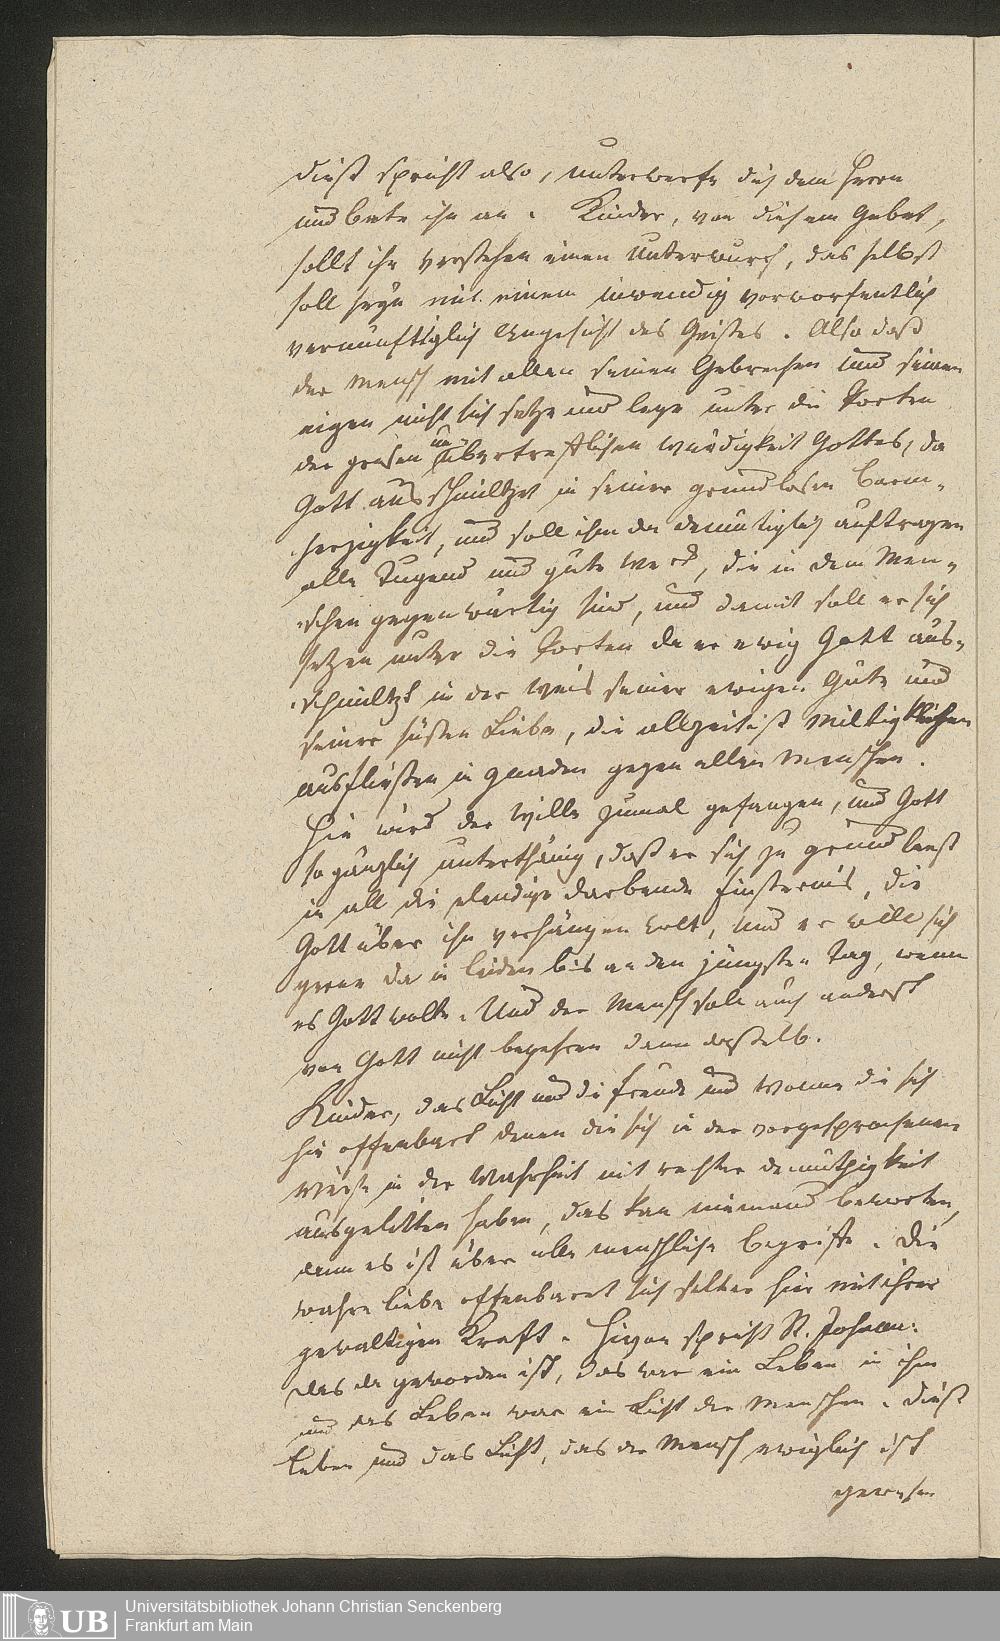 dieß spricht also, unterwerfe dich dem Herrn
und bete ihn an. Kinder, von diesem Gebet,
sollt ihr verstehen einen Unterwurf, das selbst
soll seyn mit einem inwendig vorworfentlich
vernünftiglich Angesicht des Geistes. Also daß
der Mensch mit allen seinen Gebrechen und seinen
eigen nicht sich setze und lege unter die Porten
der grosen unübertreflichen würdigkeit Gottes, da
Gott ausschmiltzet in seiner grundlosen Barm-
herzigkeit, und soll ihm da demütiglich auftragen
alle Tugend und gute Werck, die in dem Men-
schen gegenwärtig sind, und damit soll er sich
setzen unter die Porten da er ewig Gott aus-
schmiltzt in der Weis seiner ewigen Güte und
seiner süßen Liebe, die allzeit ist miltigklichen
ausfließen in gnaden gegen allen Menschen.
Hie wird der Wille zumal gefangen, und Gott
so gänzlich unterthänig, daß er sich zu grund leest
in all die elendige darbende finsternis, die
Gott über ihn verhängen wolt, und er will sich
gerne da in leiden bis an den jüngsten Tag, wenn
es Gott wolte. Und der Mensch soll auch anderst
von Gott nicht begehren dann dasselb.
Kinder, das Licht und die freude und wonne die sich
hie offenbart denen die sich in der vorgesprochenen
weise in der Wahrheit mit rechter demüthigkeit
ausgelitten haben, das kan niemand beworten,
denn es ist über alle menschliche begriffe. Die
wahre liebe offenbaret sich selber hier mit ihrer
gewaltigen Kraft. Hievon spricht St. Johann:
das da geworden ist, das war ein Leben in ihm
und das Leben war ein Licht der Menschen. Dieß
leben und das Licht, das der Mensch ewiglich ist
gewesen
Universitätsbibliothek Johann Christian Senckenberg
UB Frankfurt am Main